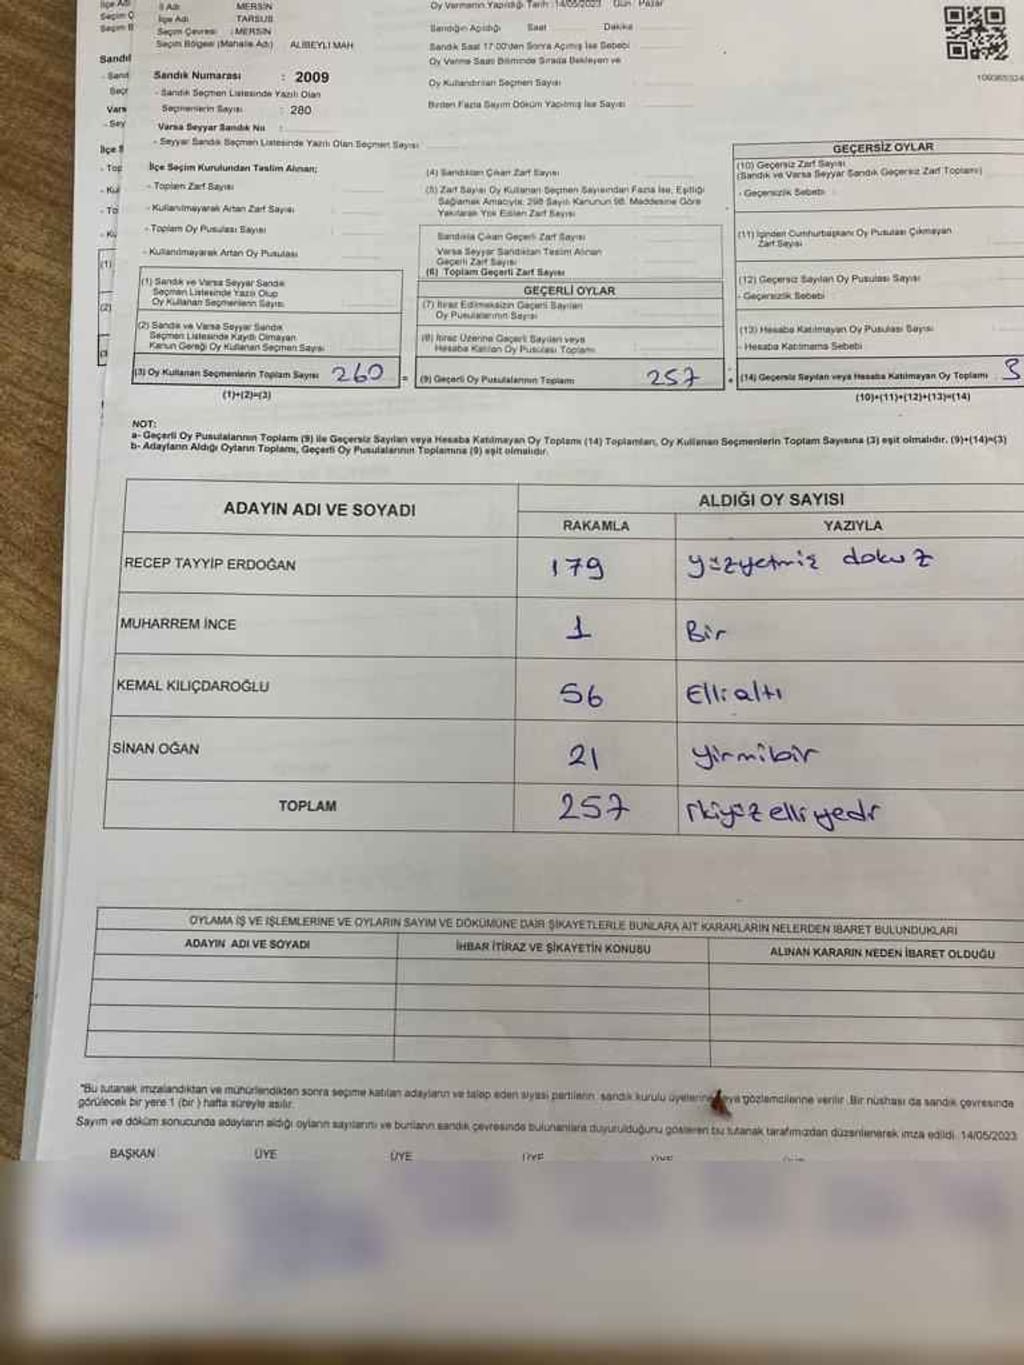 İl Adı MERSİN
İlçe Adı TARSUS
Seçim Çevresi : MERSİN
Seçim Bölgesi (Mahalle Adı) ALİBEYLİ MAH
Sandık Numarası : 2009
- Sandık Seçmen Listesinde Yazılı Olan
Seçmenlerin Sayısı : 280
Varsa Seyyar Sandık No :
- Seyyar Sandık Seçmen Listesinde Yazılı Olan Seçmen Sayısı
Oy Vermenin Yapıldığı Tarih :14/05/2023 Gün Pazar
Sandığın Açıldığı Saat Dakika
Sandık Saat 17:00'den Sonra Açılmış İse Sebebi
Oy Verme Saati Bitiminde Sırada Bekleyen ve
Oy Kullandırılan Seçmen Sayısı
Birden Fazla Sayım Döküm Yapılmış İse Sayısı
İlçe Seçim Kurulundan Teslim Alınan;
- Toplam Zarf Sayısı
- Kullanılmayarak Artan Zarf Sayısı
- Toplam Oy Pusulası Sayısı
- Kullanılmayarak Artan Oy Pusulası
(1) Sandık ve Varsa Seyyar Sandık
Seçmen Listesinde Yazılı Olup
Oy Kullanan Seçmenlerin Sayısı
(2) Sandık ve Varsa Seyyar Sandık
Seçmen Listesinde Kayıtlı Olmayan
Kanun Gereği Oy Kullanan Seçmen Sayısı
(3) Oy Kullanan Seçmenlerin Toplam Sayısı 260
(1)+(2)=(3)
(4) Sandıktan Çıkan Zarf Sayısı
(5) Zarf Sayısı Oy Kullanan Seçmen Sayısından Fazla İse, Eşitliği
Sağlamak Amacıyla, 298 Sayılı Kanunun 98. Maddesine Göre
Yakılarak Yok Edilen Zarf Sayısı
Sandıkta Çıkan Geçerli Zarf Sayısı
Varsa Seyyar Sandıktan Teslim Alınan
Geçerli Zarf Sayısı
(6) Toplam Geçerli Zarf Sayısı
GEÇERLİ OYLAR
(7) İtiraz Edilmeksizin Geçerli Sayılan
Oy Pusulalarının Sayısı
(8) İtiraz Üzerine Geçerli Sayılan veya
Hesaba Katılan Oy Pusulası Toplamı
= (9) Geçerli Oy Pusulalarının Toplamı 257
GEÇERSİZ OYLAR
(10) Geçersiz Zarf Sayısı
(Sandık ve Varsa Seyyar Sandık Geçersiz Zarf Toplamı)
- Geçersizlik Sebebi
(11) İçinden Cumhurbaşkanı Oy Pusulası Çıkmayan
Zarf Sayısı
(12) Geçersiz Sayılan Oy Pusulası Sayısı
- Geçersizlik Sebebi
(13) Hesaba Katılmayan Oy Pusulası Sayısı
- Hesaba Katılmama Sebebi
+ (14) Geçersiz Sayılan veya Hesaba Katılmayan Oy Toplamı 3
(10)+(11)+(12)+(13)=(14)
NOT:
a- Geçerli Oy Pusulalarının Toplamı (9) ile Geçersiz Sayılan veya Hesaba Katılmayan Oy Toplamı (14) Toplamları, Oy Kullanan Seçmenlerin Toplam Sayısına (3) eşit olmalıdır. (9)+(14)=(3)
b- Adayların Aldığı Oyların Toplamı, Geçerli Oy Pusulalarının Toplamına (9) eşit olmalıdır.
ADAYIN ADI VE SOYADI ALDIĞI OY SAYISI
RAKAMLA YAZIYLA
RECEP TAYYİP ERDOĞAN 179 yüzyetmiş dokuz
MUHARREM İNCE 1 Bir
KEMAL KILIÇDAROĞLU 56 Elli altı
SİNAN OĞAN 21 yirmibir
TOPLAM 257 ikiyüz elli yedi
OYLAMA İŞ VE İŞLEMLERİNE VE OYLARIN SAYIM VE DÖKÜMÜNE DAİR ŞİKAYETLERLE BUNLARA AİT KARARLARIN NELERDEN İBARET BULUNDUKLARI
ADAYIN ADI VE SOYADI İHBAR İTİRAZ VE ŞİKAYETİN KONUSU ALINAN KARARIN NEDEN İBARET OLDUĞU
*Bu tutanak imzalandıktan ve mühürlendikten sonra seçime katılan adayların ve talep eden siyasi partilerin, sandık kurulu üyelerine veya gözlemcilerine verilir. Bir nüshası da sandık çevresinde
görülecek bir yere 1 (bir) hafta süreyle asılır.
Sayım ve döküm sonucunda adayların aldığı oyların sayılarını ve bunların sandık çevresinde bulunanlara duyurulduğunu gösteren bu tutanak tarafımızdan düzenlenerek imza edildi. 14/05/2023
BAŞKAN ÜYE ÜYE ÜYE ÜYE